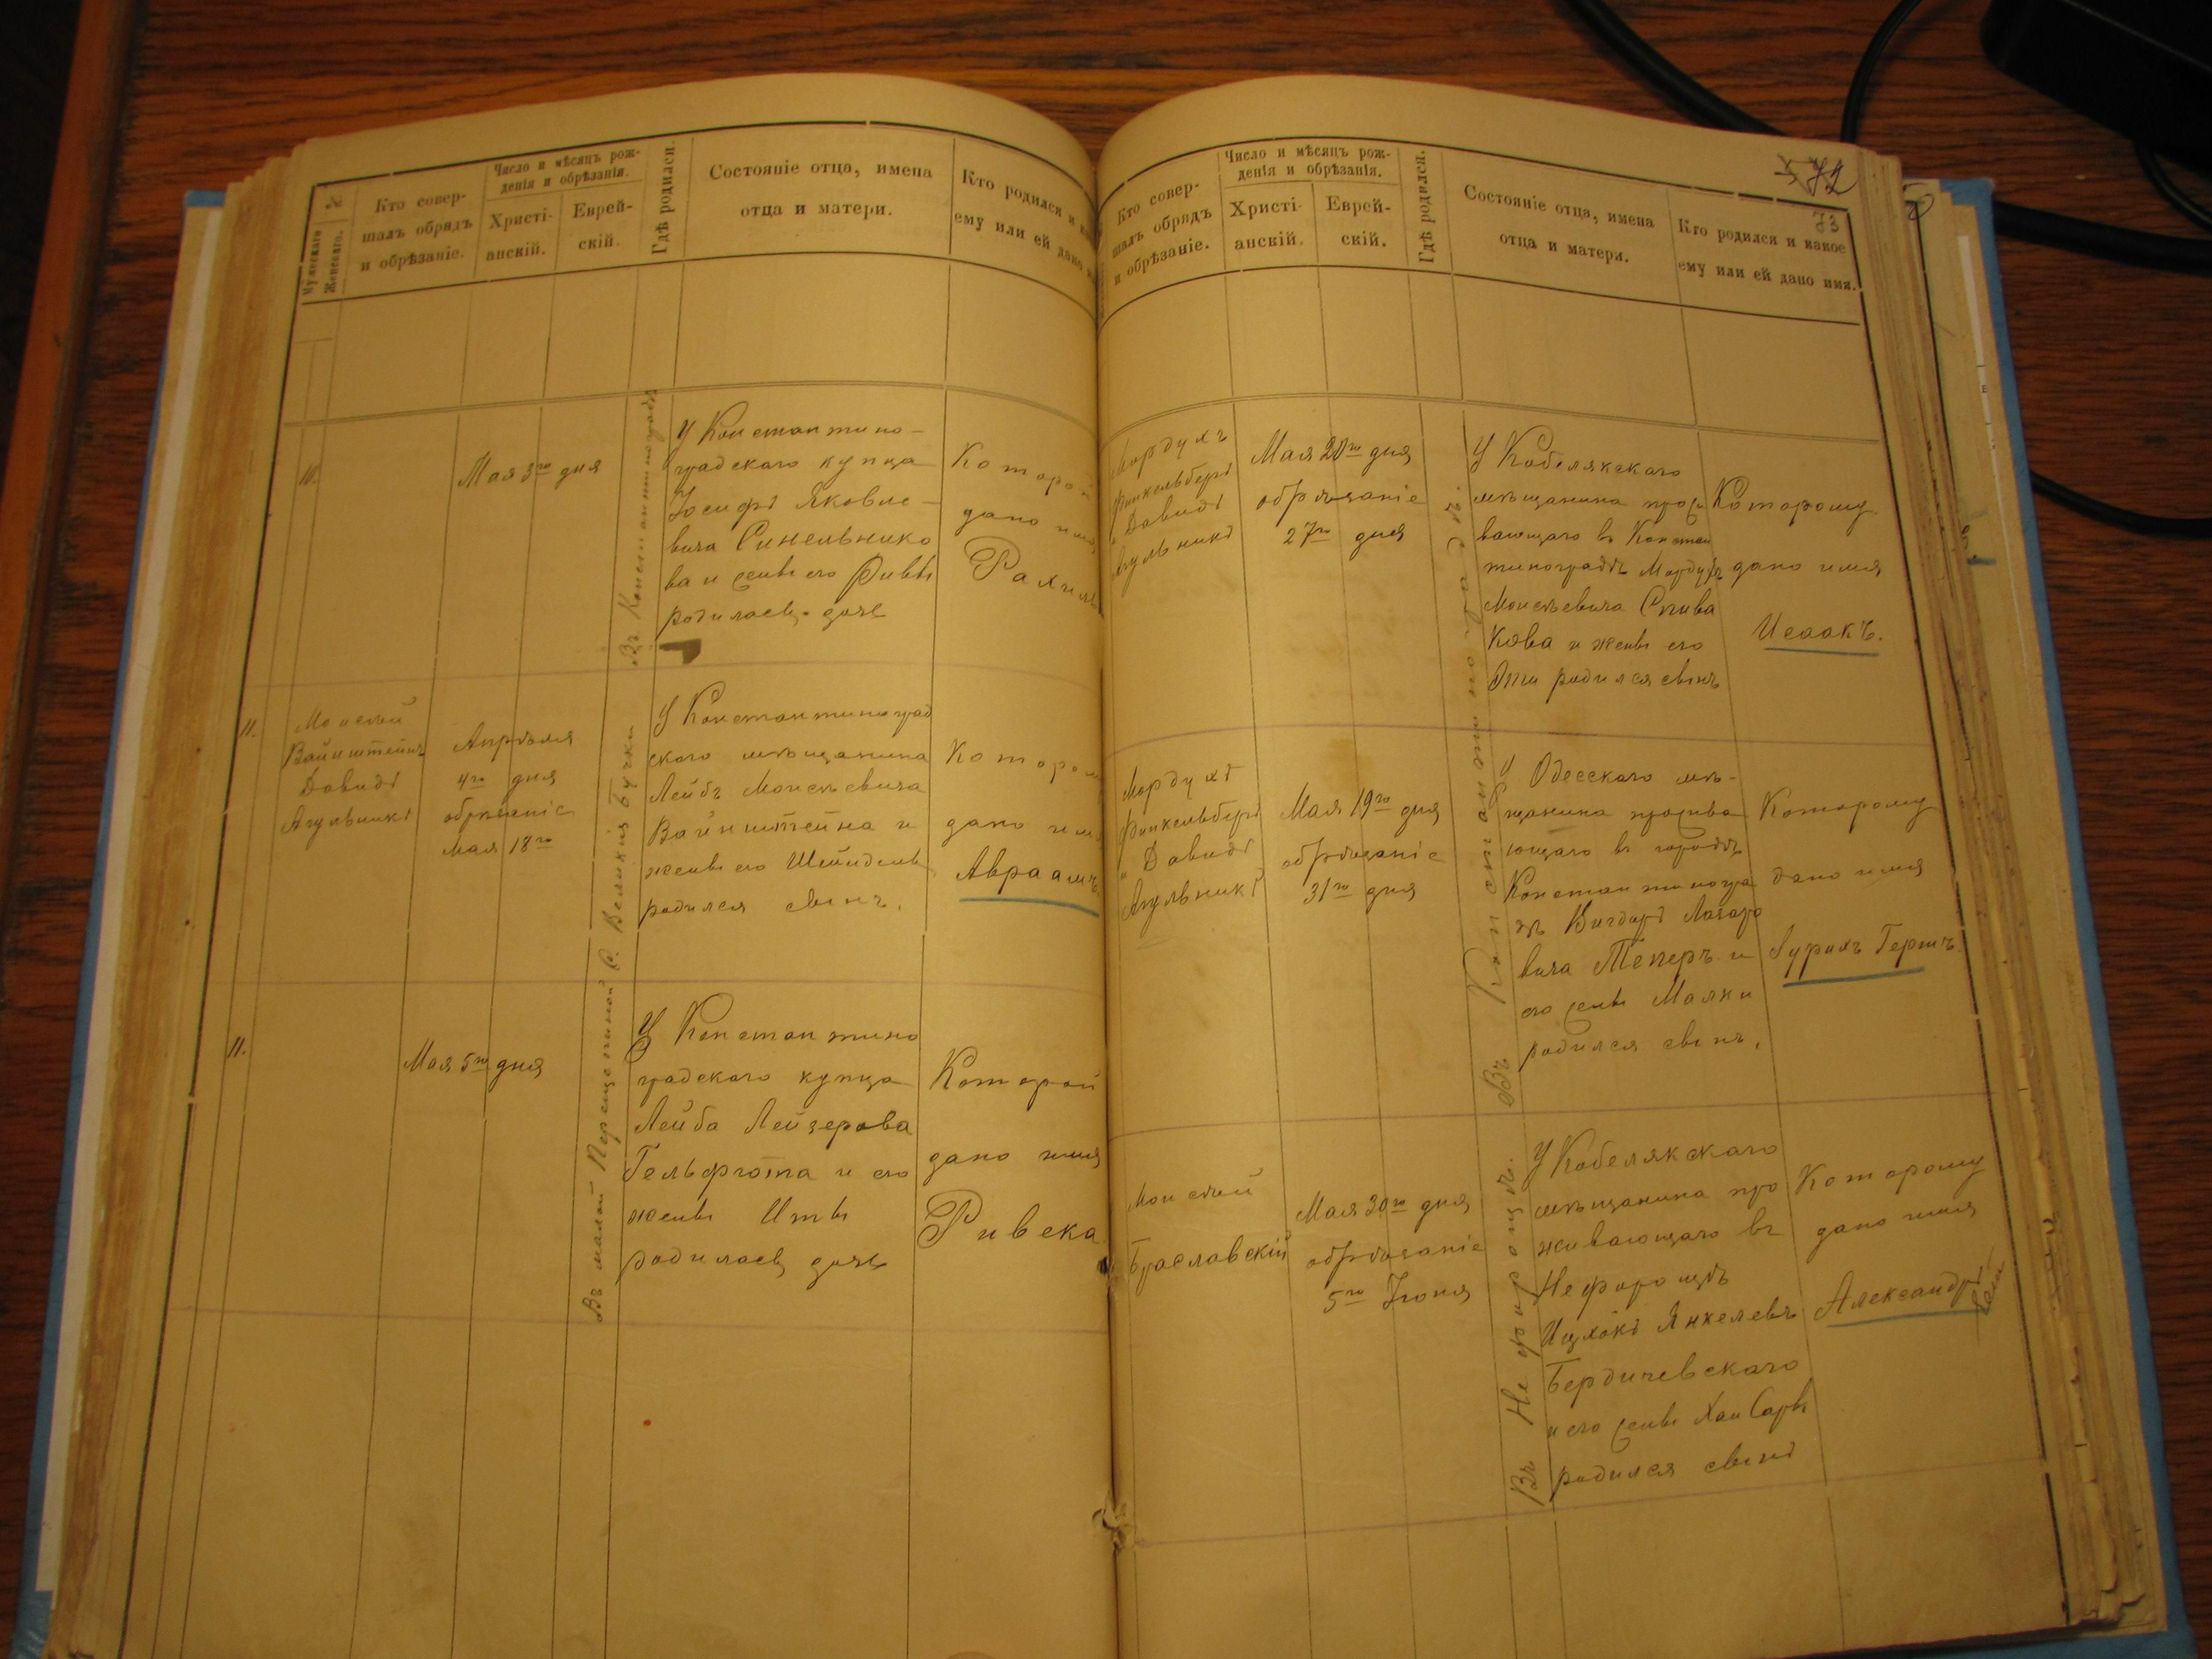 №
Мужескаго
Женскаго.
Кто совер-
шалъ обрядъ
и обрѣзаніе.
Число и мѣсяцъ рож-
денія и обрѣзанія.
Христі-
анскій.
Еврей-
скій.
Гдѣ родился.
Состояніе отца, имена
отца и матери.
Кто родился и
ему или ей дано
10.
Мая 3го дня
Въ Константиноградѣ
У Константино-
градскаго купца
Іосифа Яковле-
вича Синельнико
ва и жены его Ривы
родилась дочь
Которой
дано имя
Рахиль
11.
Моисей
Вайнштейнъ
Давидъ
Апрѣля
4го дня
обрѣзаніе
мая 18го
Великія Бучки
У Константиноград
скаго мѣщанина
Лейбъ Моисѣевича
Вайнштейна и
жены его Шейндель
родился сынъ.
Которому
дано имя
Авраамъ
11.
Мая 5го дня
Въ малой Перещепиной
У Константино
градскаго купца
Лейба Лейзерова
Гельфгота и его
жены Иты
родилась дочь
Которой
дано имя
Ривека
72
73
Кто совер-
шалъ обрядъ
и обрѣзаніе.
Число и мѣсяцъ рож-
денія и обрѣзанія.
Христі-
анскій.
Еврей-
скій.
Гдѣ родился.
Состояніе отца, имена
отца и матери.
Кто родился и какое
ему или ей дано имя.
Мордухъ
Финкельбергъ
Давидъ
Мая 20го дня
обрѣзаніе
27го дня
Въ Константиноградѣ.
У Кобелякскаго
мѣщанина прожи
вающаго въ Констан
тиноградѣ Мордухъ
Моисѣевича Спива
кова и жены его
Эти родился сынъ
Которому
дано имя
Исаакъ.
Мордухъ
Финкельбергъ
Давидъ
Мая 19го дня
обрѣзаніе
31го дня
У Одесскаго мѣ-
щанина прожива
ющаго въ городѣ
Константиногра
дѣ Вигдоръ Лазаро
вича Теперъ и
его жены Малки
родился сынъ.
Которому
дано имя
Гершъ.
Моисей
Браславскій
Мая 30го дня
обрѣзаніе
5го Іюня
Въ Нефорощѣ.
У Кобелякскаго
мѣщанина про
живающаго въ
Нефорощѣ
Ицхокъ Янкелевъ
Бердичевскаго
и его жены Хаи Сары
родился сынъ
Которому
дано имя
Александръ